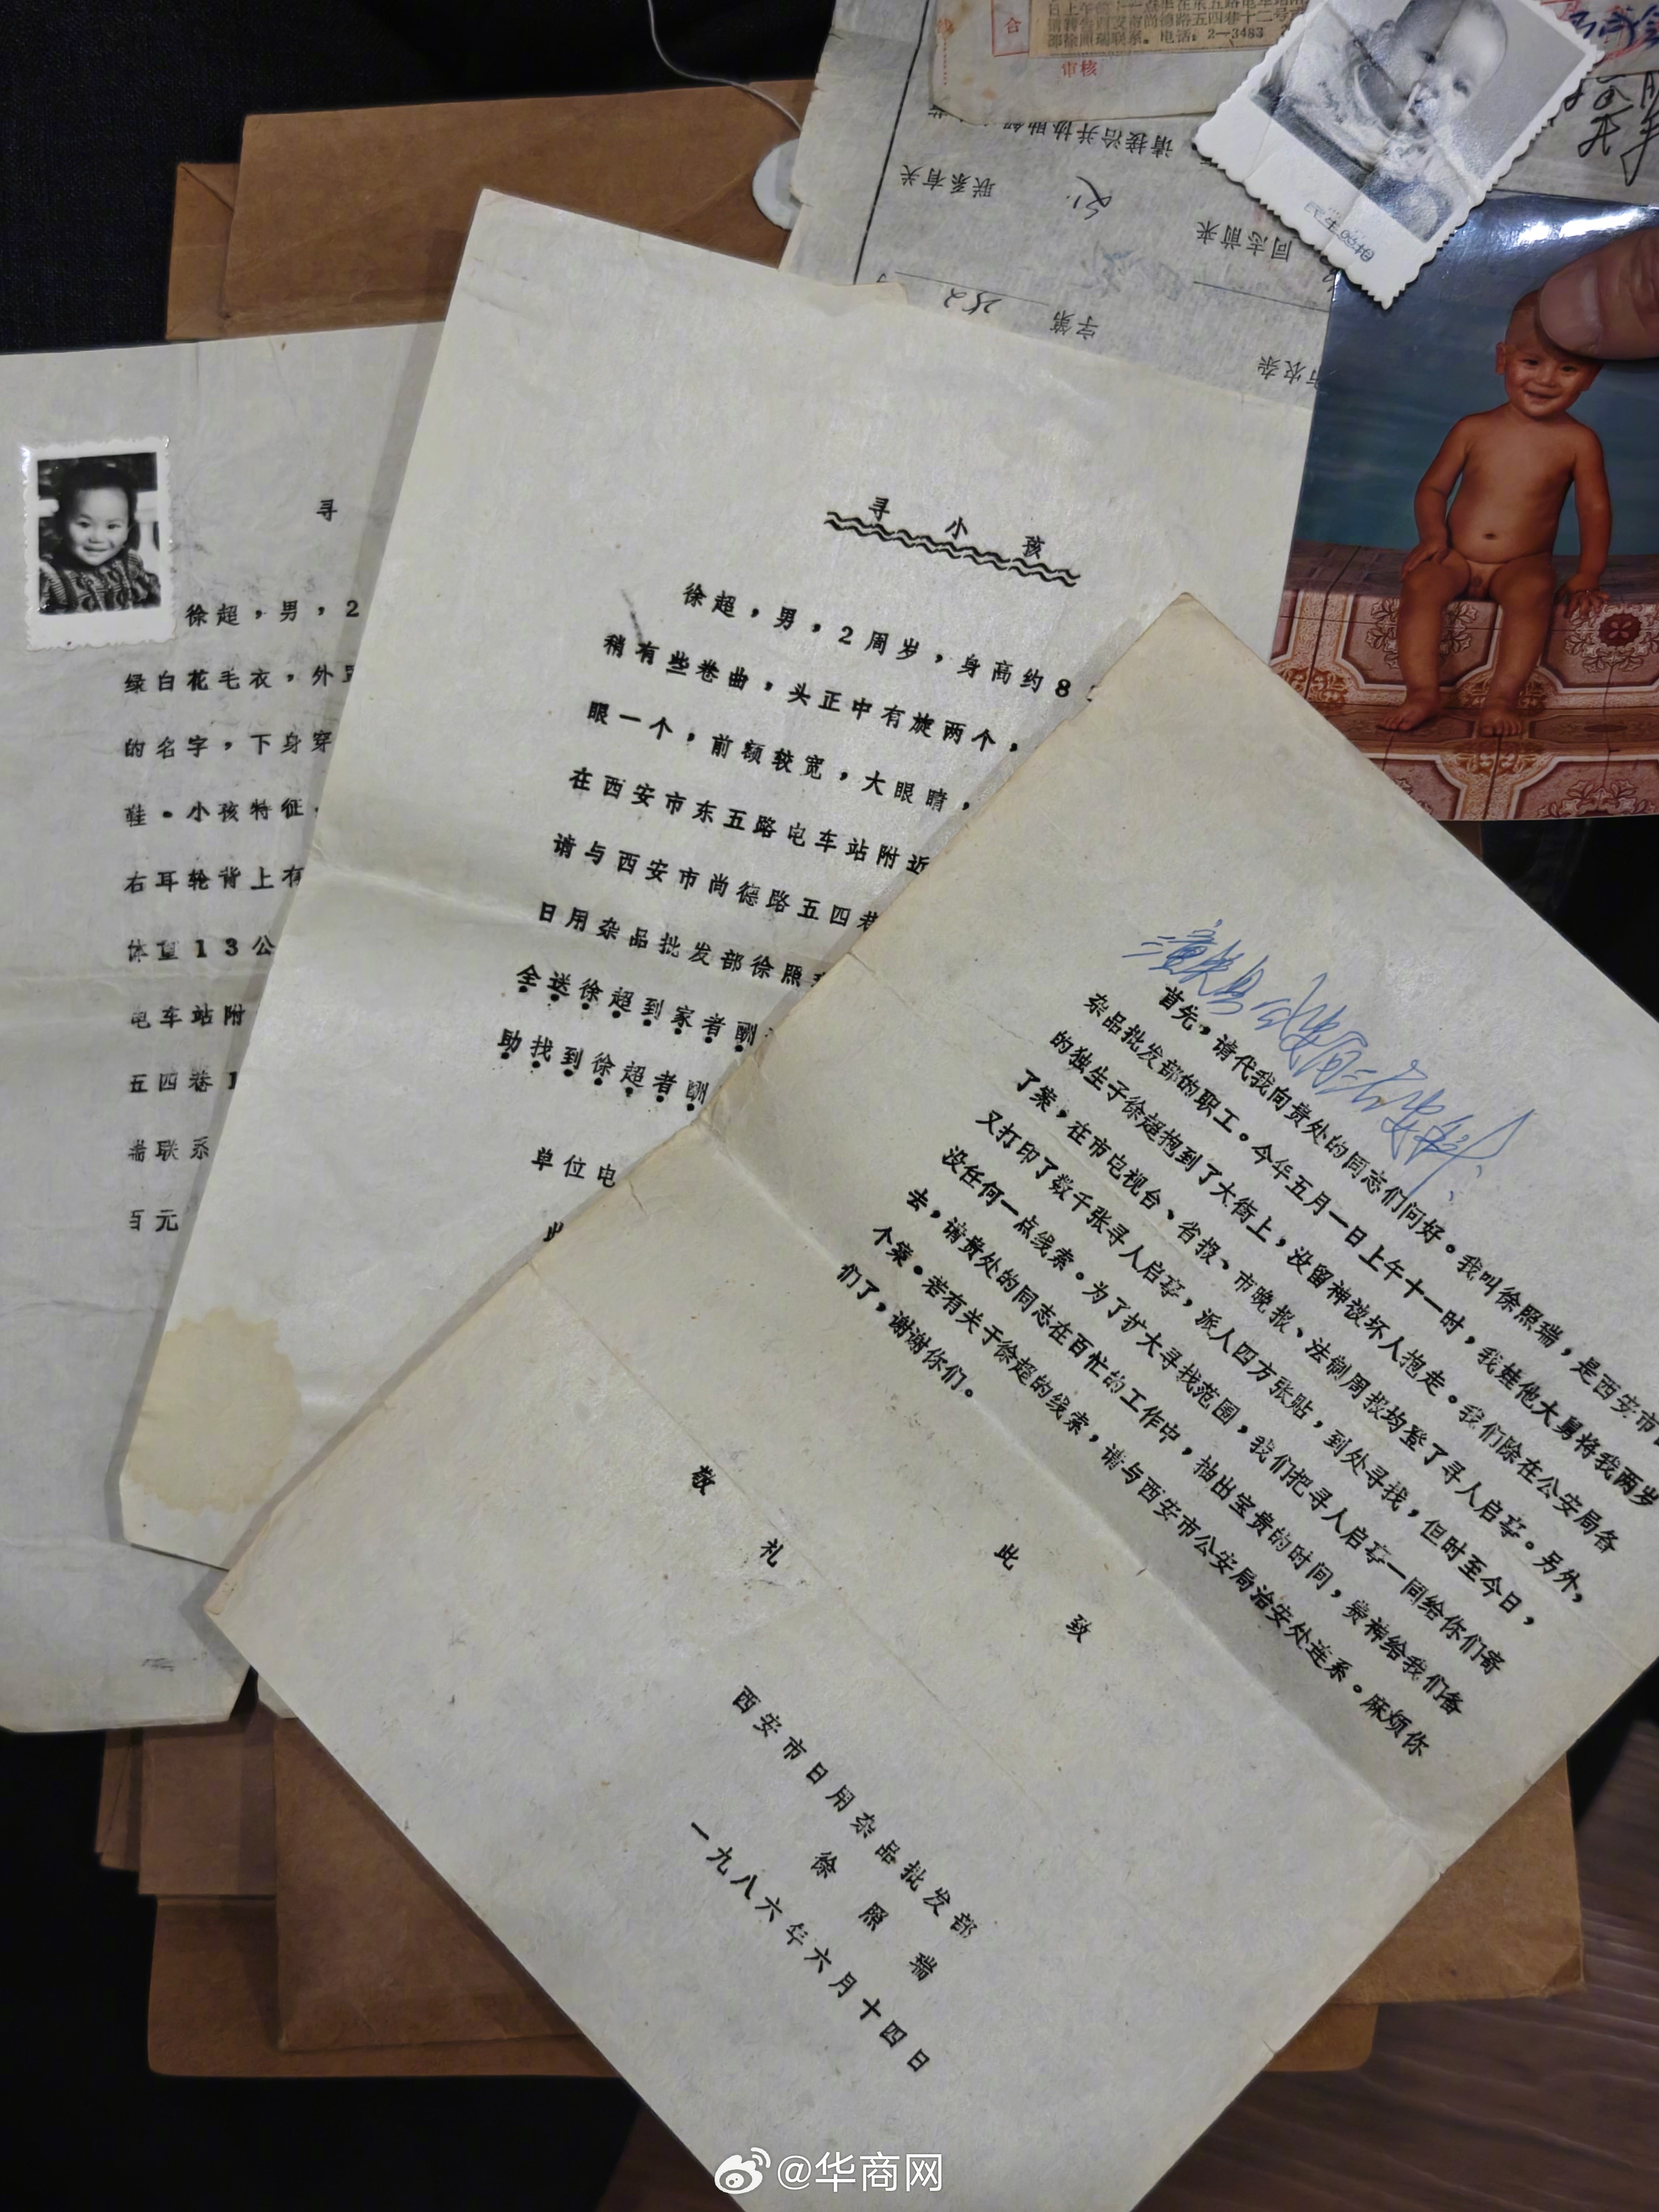 日上午
一点半在东五路电车站附
尚德路五四巷十二号
部徐照瑞联系。电话:2—3483
合
审核
请接洽并协助
联系有关
同志前来
字第
252
百天生日
寻
徐超,男,2
绿白花毛衣,外罩
的名字,下身穿
鞋。小孩特征
右耳轮背上有
体重13公
电车站附
五四巷1
瑞联系
百元
寻小孩
徐超,男,2周岁,身高约8
稍有些卷曲,头正中有旋两个,
眼一个,前额较宽,大眼睛,
在西安市东五路电车站附近
请与西安市尚德路五四巷
日用杂品批发部徐照
全送徐超到家者酬
助找到徐超者酬
单位电
首先,请代我向贵处的同志们问好。我叫徐照瑞,是西安市
杂品批发部的职工。今年五月一日上午十一时,我娃他大舅将我两岁
的独生子徐超抱到了大街上,没留神被坏人抱走。我们除在公安局备
了案,在市电视台、省报、市晚报、法制周报均登了寻人启事。另外,
又打印了数千张寻人启事,派人四方张贴,到处寻找,但时至今日,
没任何一点线索。为了扩大寻找范围,我们把寻人启事一同给你们寄
去,请贵处的同志在百忙的工作中,抽出宝贵的时间,费神给我们备
个案。若有关于徐超的线索,请与西安市公安局治安处连系。麻烦你
们了,谢谢你们。
此致
敬礼
西安市日用杂品批发部
徐照瑞
一九八六年六月十四日
@华商网